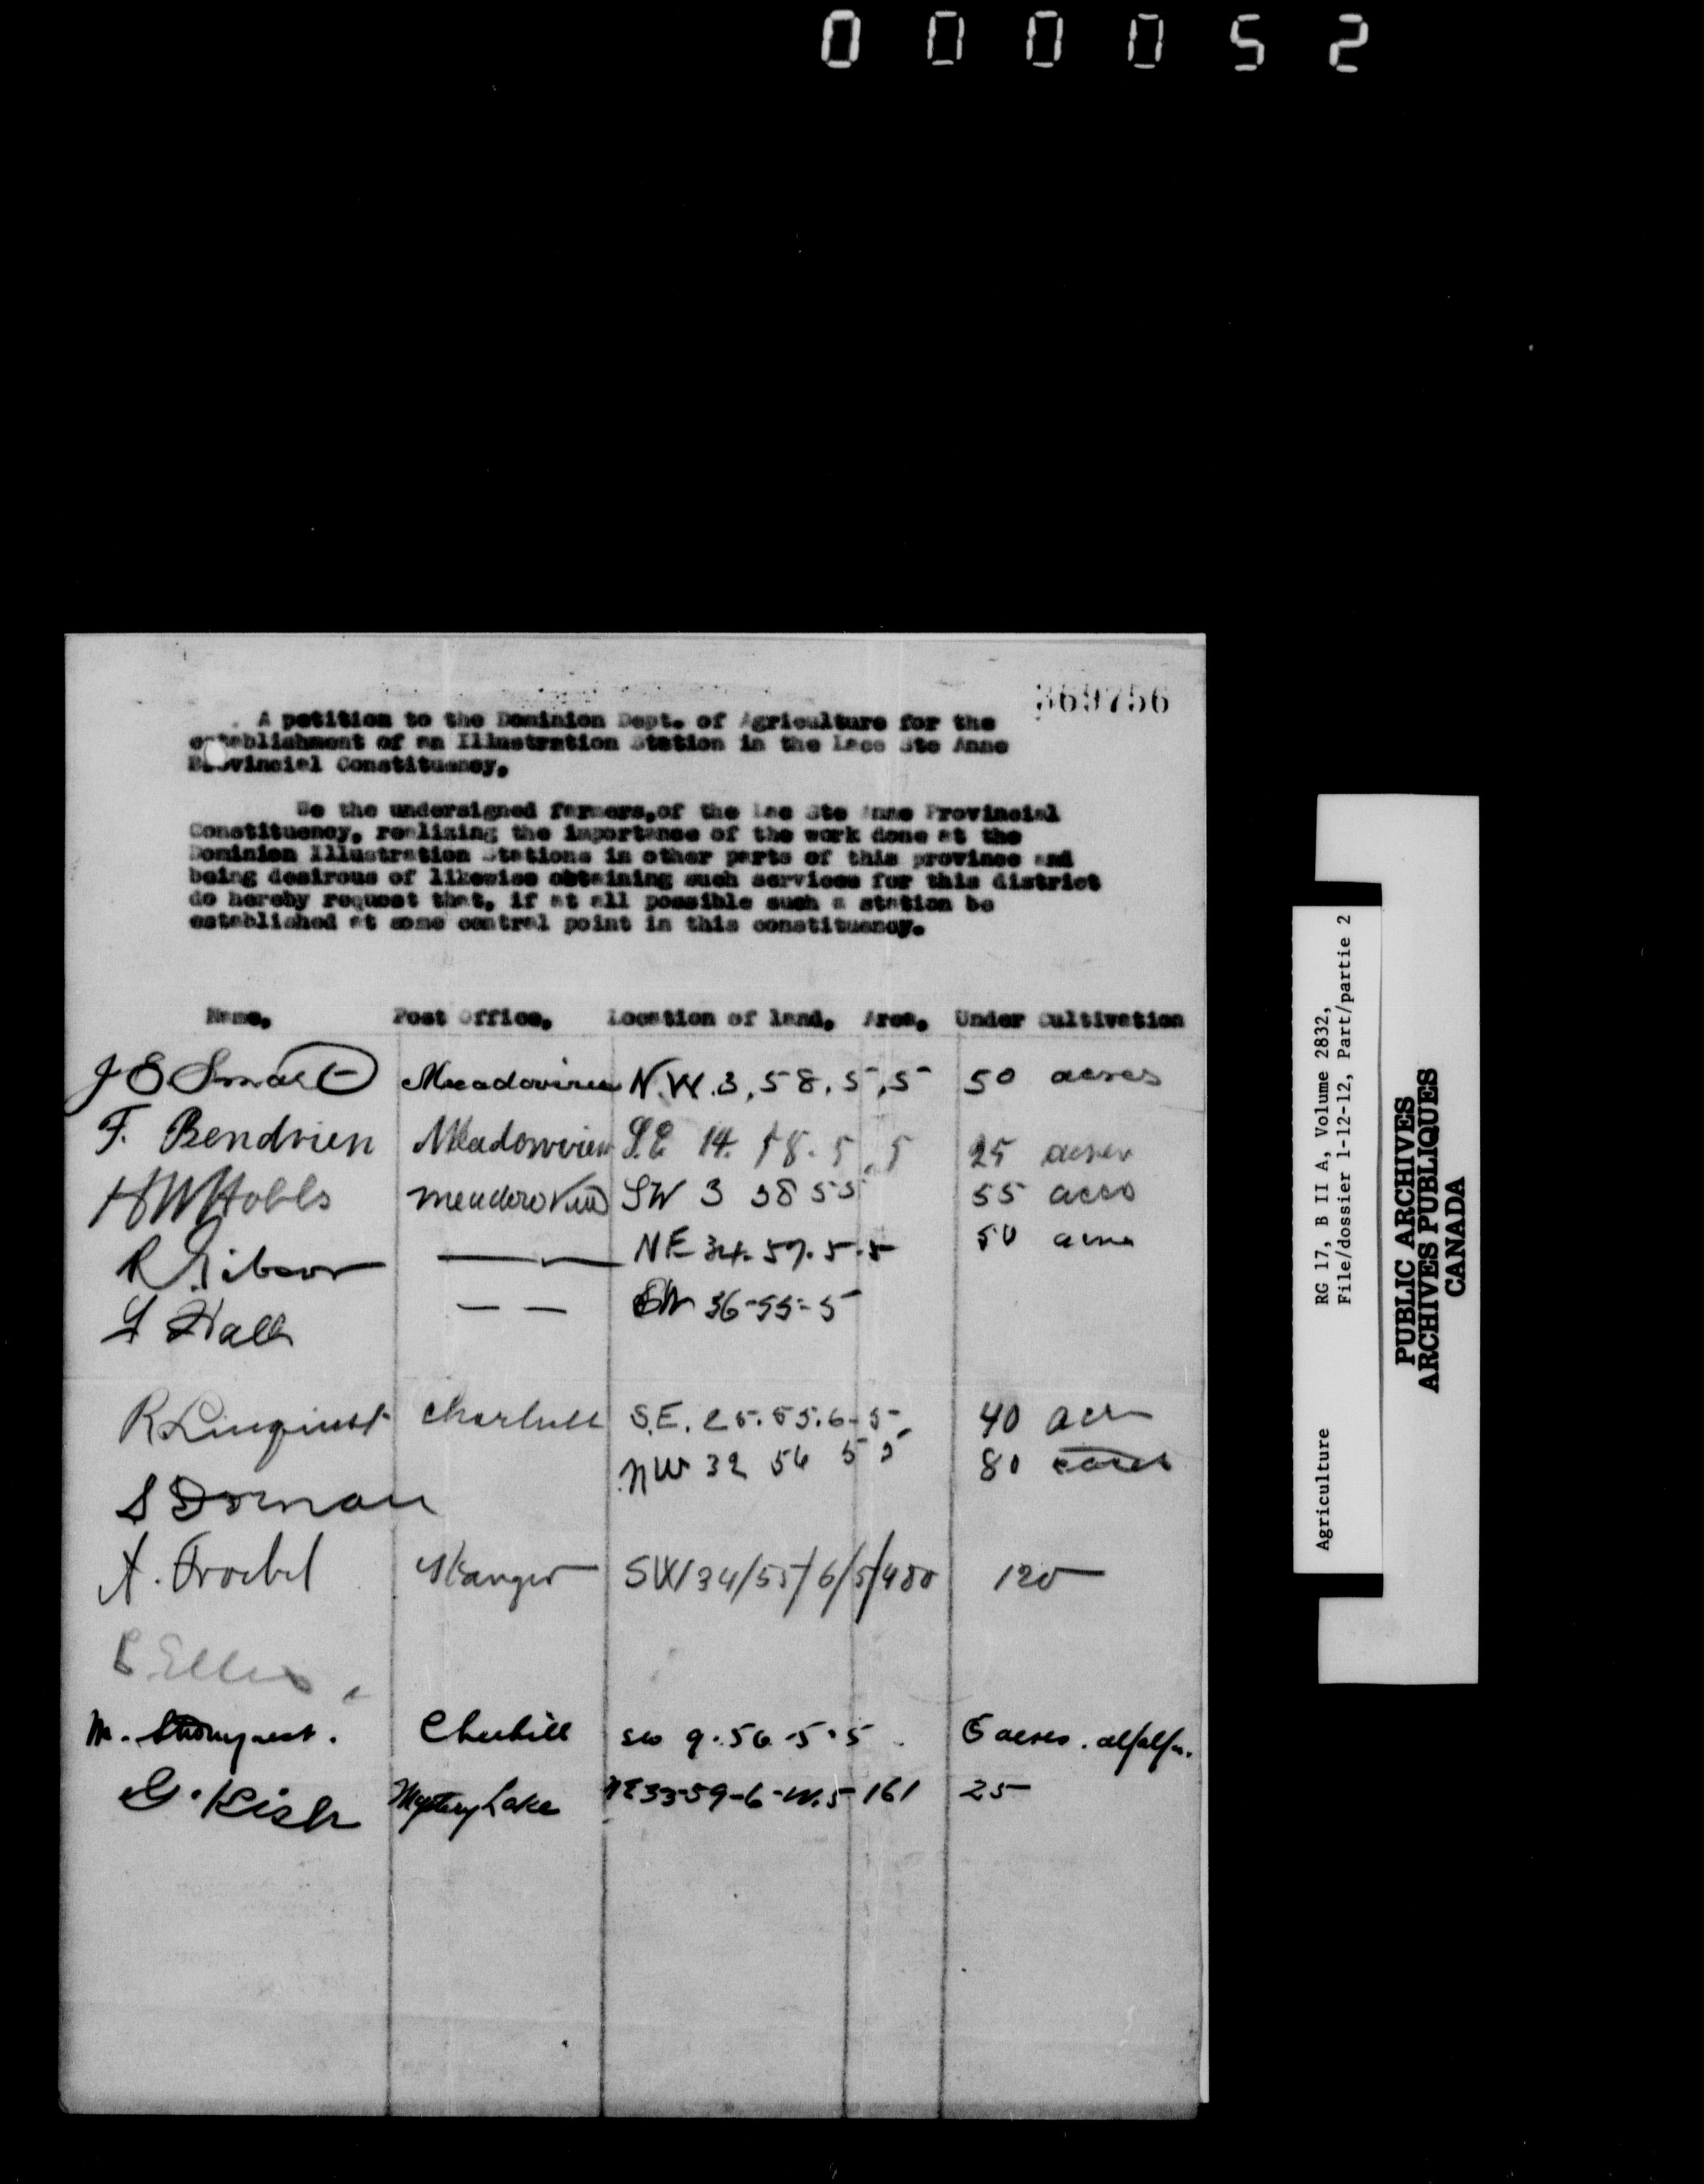 000052
369756
A petition to the Dominion Dept. of Agriculture for the
establishment of an Illustration Station in the Lace Ste Anne
Provincial Constituency.
We the undersigned farmers,of the Lac Ste Anne Provincial
Constituency, realizing the importance of the work done at the
Dominion Illustration Stations in other parts of this province and
being desirous of likewise obtaining such services for this district
do hereby request that, if at all possible such a station be
established at some central point in this constituency.
Name, Post Office, Location of land, Area, Under Cultivation
J E Smart Meadowview N.W. 3, 58, 5, 5 50 acres
F. Bendrien Meadowview S.E 14. 58. 5. 5 25 acres
H W Hobbs meadowview SW 3 58 5 5 55 acres
R Gibson NE 34. 57. 5. 5 50 acres
Hall — — SW 36-55-5
R Linquist Cherhill S.E. 25. 55. 6-5 40 acres
S Dornan NW 32 56 5 5 80 acres
A. Froebel Stanger SW/34/55/6/5/480 120
Ellis
M. Stromquest. Cherhill sw 9. 56-5-5 5 acres. alfalfa.
G. Kish Mystery Lake NE 33-59-6-W.5 161 25
Agriculture RG 17, B II A, Volume 2832,
File/dossier 1-12-12, Part/partie 2
PUBLIC ARCHIVES
ARCHIVES PUBLIQUES
CANADA